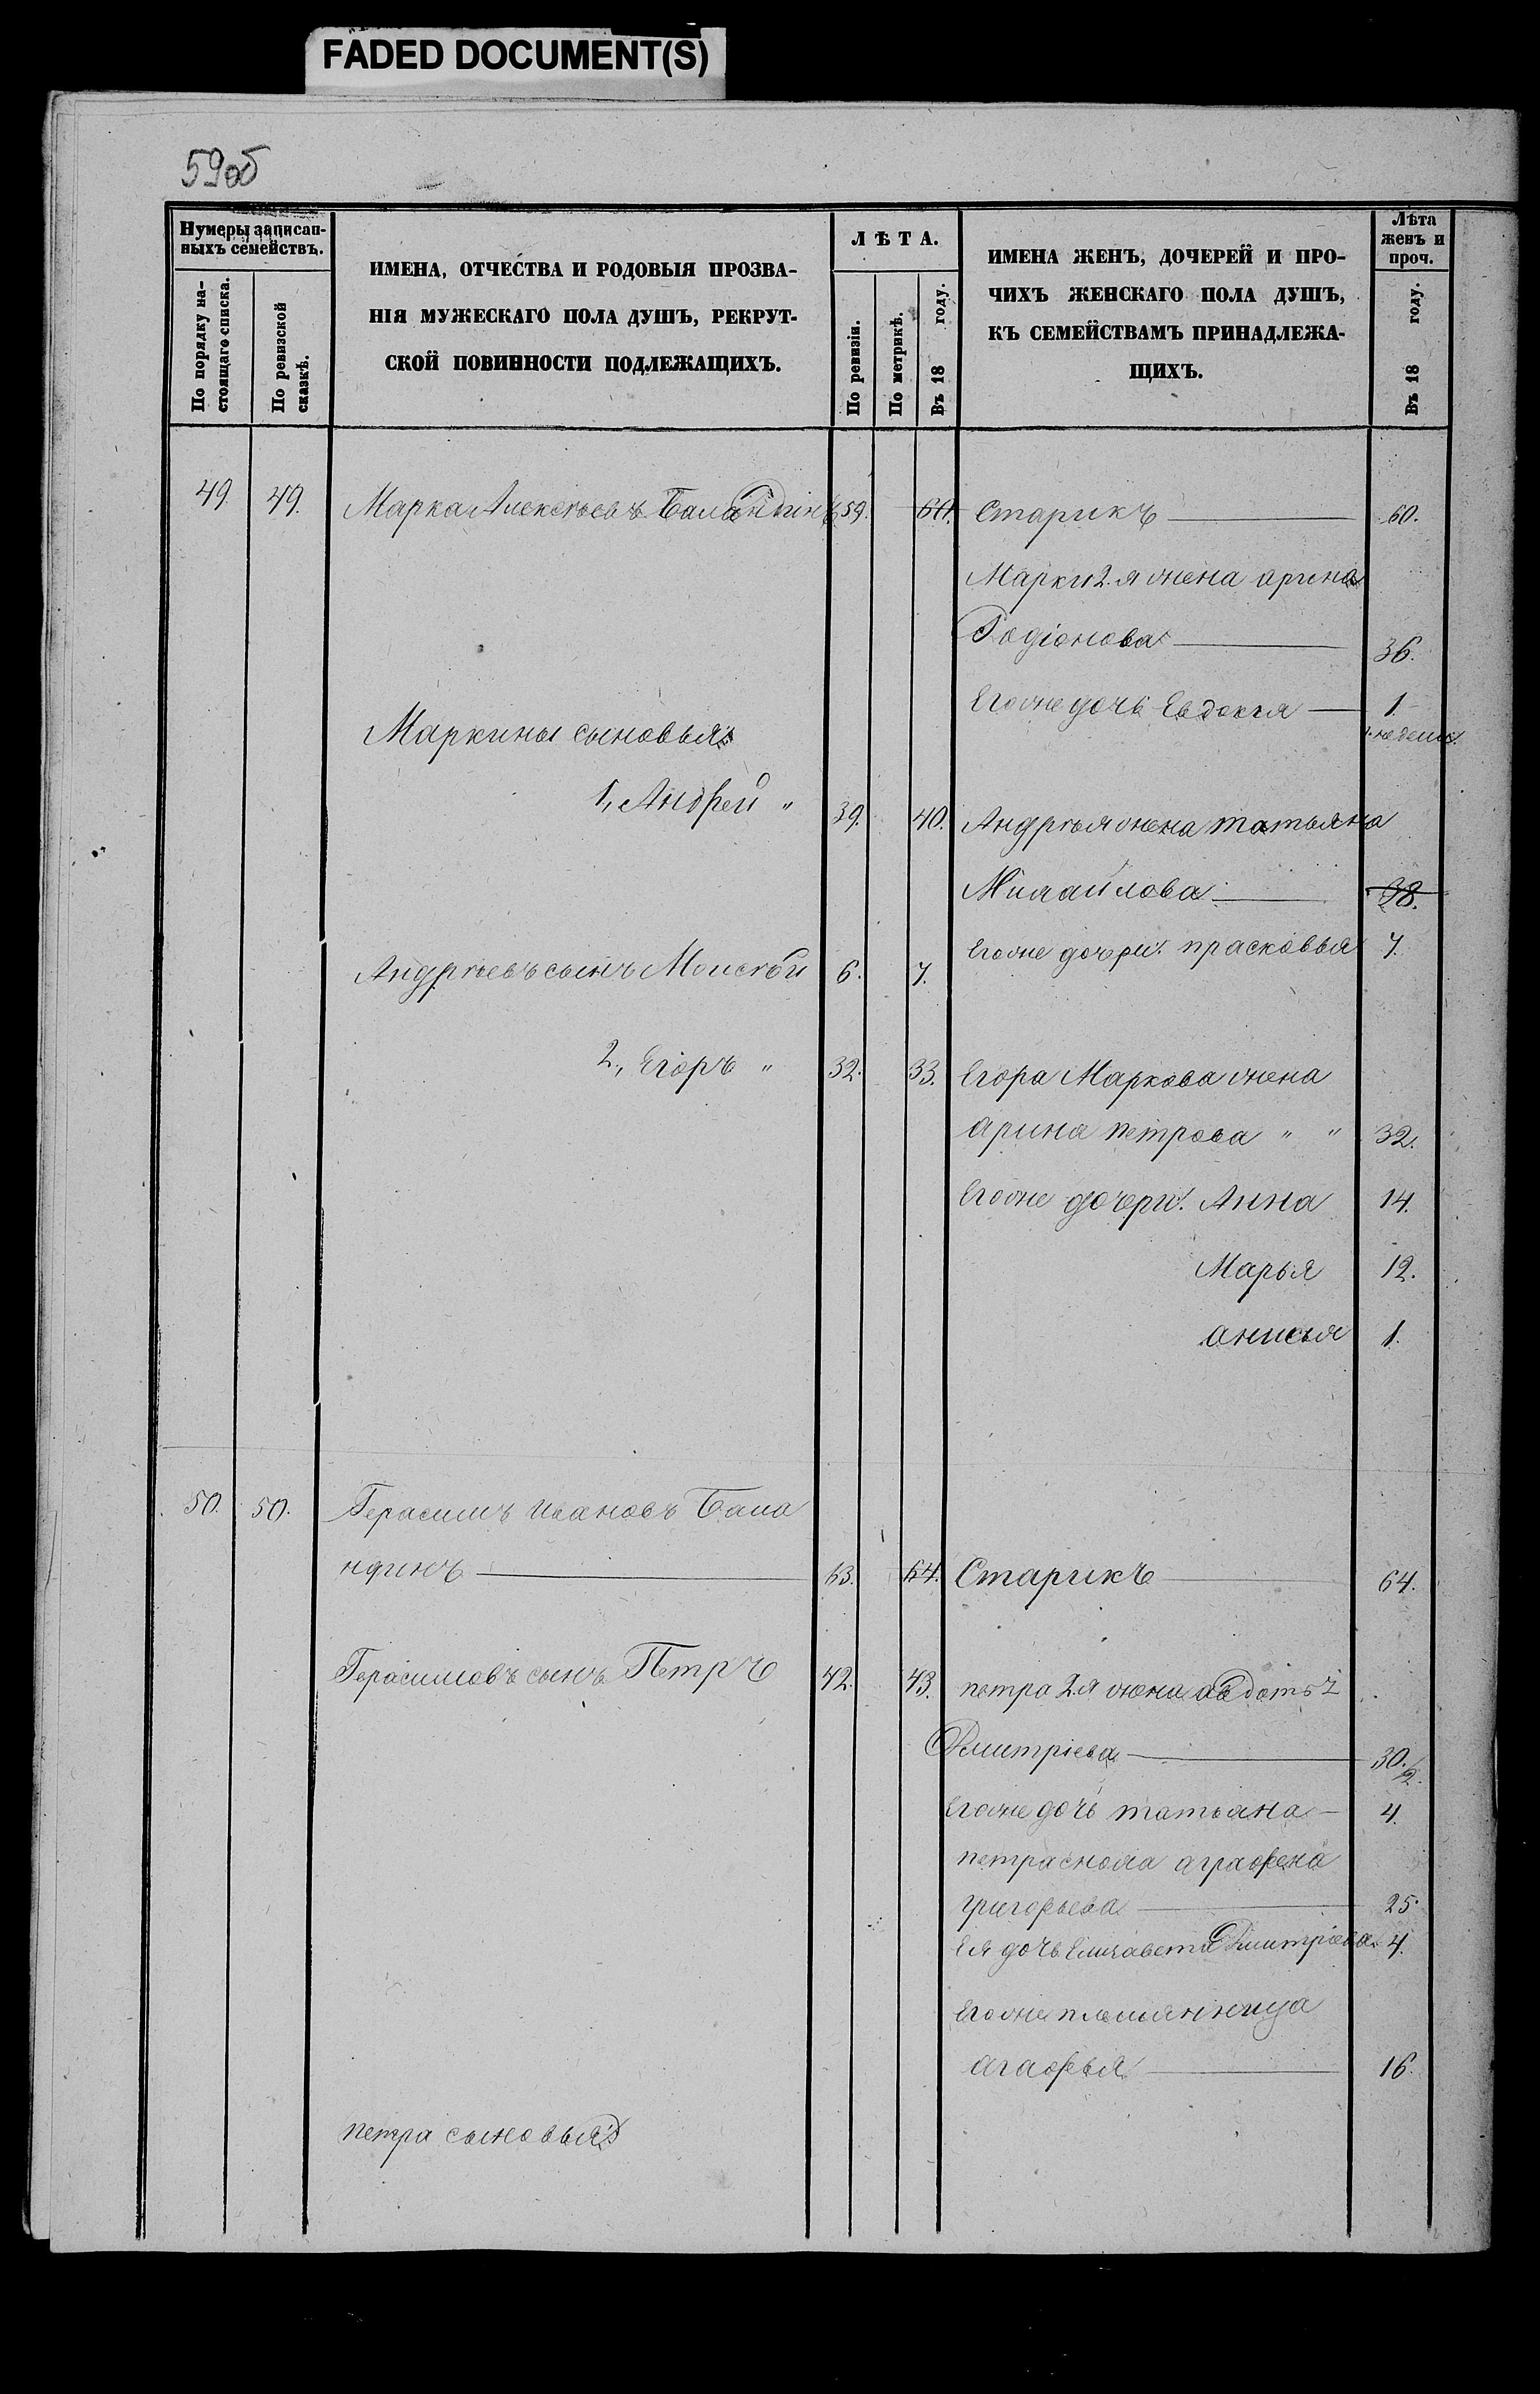 FADED DOCUMENT(S)
59об
Нумеры записан-
ныхъ семействъ.
По порядку на-
стоящаго списка.
По ревизской
сказкѣ.
ИМЕНА, ОТЧЕСТВА И РОДОВЫЯ ПРОЗВА-
НІЯ МУЖЕСКАГО ПОЛА ДУШЪ, РЕКРУТ-
СКОЙ ПОВИННОСТИ ПОДЛЕЖАЩИХЪ.
ЛѢТА.
По ревизіи.
По метрикѣ.
Въ 18 году.
ИМЕНА ЖЕНЪ, ДОЧЕРЕЙ И ПРО-
ЧИХЪ ЖЕНСКАГО ПОЛА ДУШЪ,
КЪ СЕМЕЙСТВАМЪ ПРИНАДЛЕЖА-
ЩИХЪ.
Лѣта
женъ и
проч.
Въ 18 году.
49. 49. Марка Алексѣевъ Баландинъ 59. 60. Старикъ 60.
Марки 2.я жена арина
Родіонова 36.
Егоже дочь Евдокія 1.
недели.
Маркины сыновья:
1, Андрей " 39. 40. Андрѣя жена татьяна
Михайлова 38.
Егоже дочери: прасковья 7.
Андрѣевъ сынъ Моисѣй 6. 7.
2, Егоръ " 32. 33. Егора Маркова жена
арина петрова " " 32.
Егоже дочери: Анна 14.
Марья 12.
анисья 1.
50. 50. Герасимъ Ивановъ Бала
ндинъ 63. 64. Старикъ 64.
Герасимовъ сынъ Петръ 42. 43. петра 2.я жена авдотья
Дмитріева 30.1/2.
Егоже дочь татьяна 4.
петра сноха аграфена
григорьева 25.
Ея дочь Елизавета Дмитріева 4.
Егоже племянница
агафья 16.
петра сыновья: